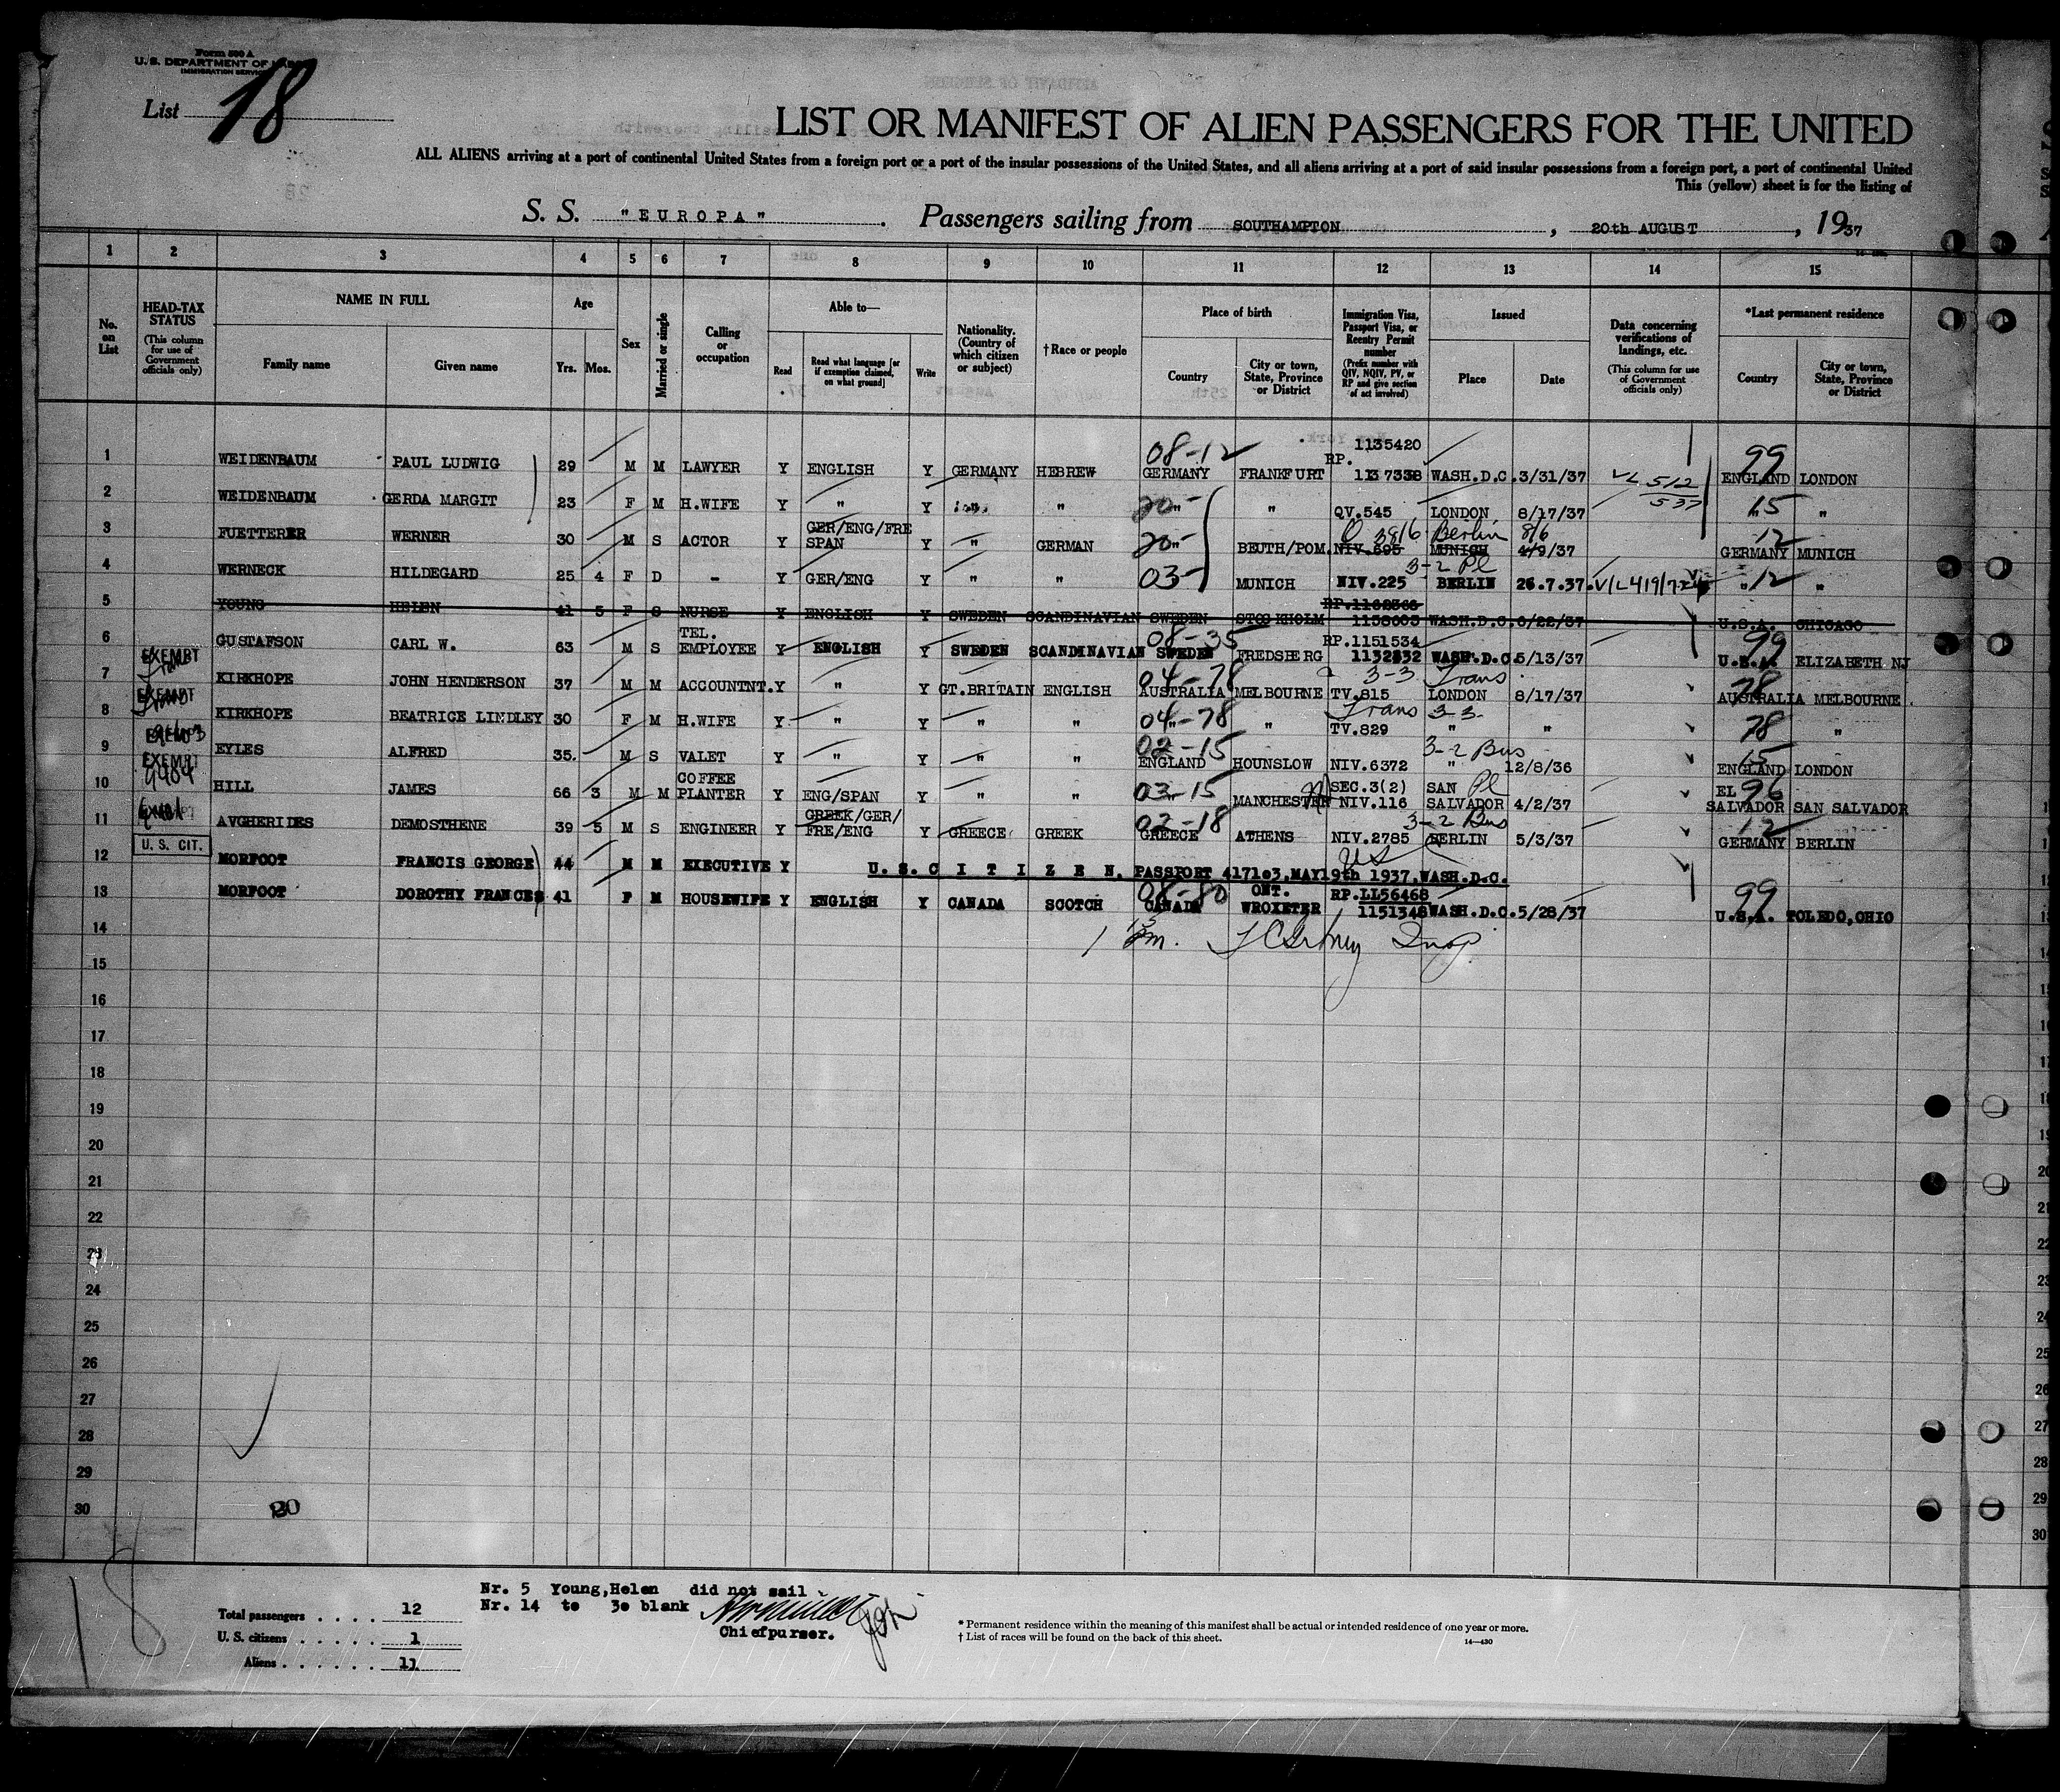 Form 500 A
U. S. DEPARTMENT OF
IMMIGRATION SERVICE
List 18
LIST OR MANIFEST OF ALIEN PASSENGERS FOR THE UNITED
ALL ALIENS arriving at a port of continental United States from a foreign port or a port of the insular possessions of the United States, and all aliens arriving at a port of said insular possessions from a foreign port, a port of continental United
This (yellow) sheet is for the listing of
S. S. "EUROPA" . Passengers sailing from SOUTHAMPTON , 20th AUGUST , 1937
1 2 3 4 5 6 7 8 9 10 11 12 13 14 15
No. on List
HEAD-TAX STATUS (This column for use of Government officials only)
NAME IN FULL Family name Given name
Age Yrs. Mos.
Sex
Married or single
Calling or occupation
Able to— Read Read what language [or if exemption claimed, on what ground] Write
Nationality. (Country of which citizen or subject)
† Race or people
Place of birth Country City or town, State, Province or District
Immigration Visa, Passport Visa, or Reentry Permit number (Prefix number with QIV, NQIV, PV, or RP and give section of act involved)
Issued Place Date
Data concerning verifications of landings, etc. (This column for use of Government officials only)
*Last permanent residence Country City or town, State, Province or District
1 WEIDENBAUM PAUL LUDWIG 29 M M LAWYER Y ENGLISH Y GERMANY HEBREW 08-12 GERMANY FRANKFURT 1135420 RP. 1137338 WASH.D.C. 3/31/37 VL 512 537 99 ENGLAND LONDON
2 WEIDENBAUM GERDA MARGIT 23 F M H.WIFE Y " Y " " 20 " " QV.545 LONDON 8/17/37 15 " "
3 FUETTERER WERNER 30 M S ACTOR Y GER/ENG/FRE SPAN Y " GERMAN 20 " BEUTH/POM. NIV.695 3816 Berlin 8/6 MUNICH 4/9/37 12 GERMANY MUNICH
4 WERNECK HILDEGARD 25 4 F D - Y GER/ENG Y " " 03- MUNICH 3-2 Pl NIV.225 BERLIN 26.7.37. 12 " "
5 YOUNG HELEN 41 5 F S NURSE Y ENGLISH Y SWEDEN SCANDINAVIAN SWEDEN STOCKHOLM WASH.D.C. U.S.A. CHICAGO
6 GUSTAFSON CARL W. 63 M S TEL. EMPLOYEE Y ENGLISH Y SWEDEN SCANDINAVIAN 08-35 SWEDEN FREDSBERG RP.1151534 1132832 WASH.D.C. 5/13/37 99 U.S.A. ELIZABETH NJ
7 EXEMPT KIRKHOPE JOHN HENDERSON 37 M M ACCOUNTNT. Y " Y GT.BRITAIN ENGLISH 04-78 AUSTRALIA MELBOURNE 3-3 Trans TV.815 LONDON 8/17/37 78 AUSTRALIA MELBOURNE
8 EXEMPT KIRKHOPE BEATRICE LINDLEY 30 F M H.WIFE Y " Y " " 04-78 " " Trans 3-3 TV.829 " " 78 " "
9 EYLES ALFRED 35. M S VALET Y " Y " " 02-15 ENGLAND HOUNSLOW NIV.6372 3-2 Bus " 12/8/36 15 ENGLAND LONDON
10 EXEMPT HILL JAMES 66 3 M M COFFEE PLANTER Y ENG/SPAN Y " " 03-15 " MANCHESTER SEC.3(2) NIV.116 SAN SALVADOR Pl 4/2/37 96 EL SALVADOR SAN SALVADOR
11 AVGHERIDES DEMOSTHENE 39 5 M S ENGINEER Y GREEK/GER/ FRE/ENG Y GREECE GREEK 02-18 GREECE ATHENS 3-2 Bus NIV.2785 BERLIN 5/3/37 12 GERMANY BERLIN
12 U. S. CIT. MORFOOT FRANCIS GEORGE 44 M M EXECUTIVE Y U.S.CITIZEN. PASSPORT 4171o3,MAY19th 1937,WASH.D.C. US
13 MORFOOT DOROTHY FRANCES 41 F M HOUSEWIFE Y ENGLISH Y CANADA SCOTCH 08-80 CANADA ONT. WROXETER RP.LL56468 1151348 WASH.D.C. 5/28/37 99 U.S.A. TOLEDO,OHIO
14
15
16
17
18
19
20
21
22
23
24
25
26
27
28
29
30
20
Nr. 5 Young,Helen did not sail
Nr. 14 to 3o blank
Chiefpurser.
Total passengers . . . . 12
U. S. citizens . . . . . 1
Aliens . . . . . . 11
* Permanent residence within the meaning of this manifest shall be actual or intended residence of one year or more.
† List of races will be found on the back of this sheet.
14—430